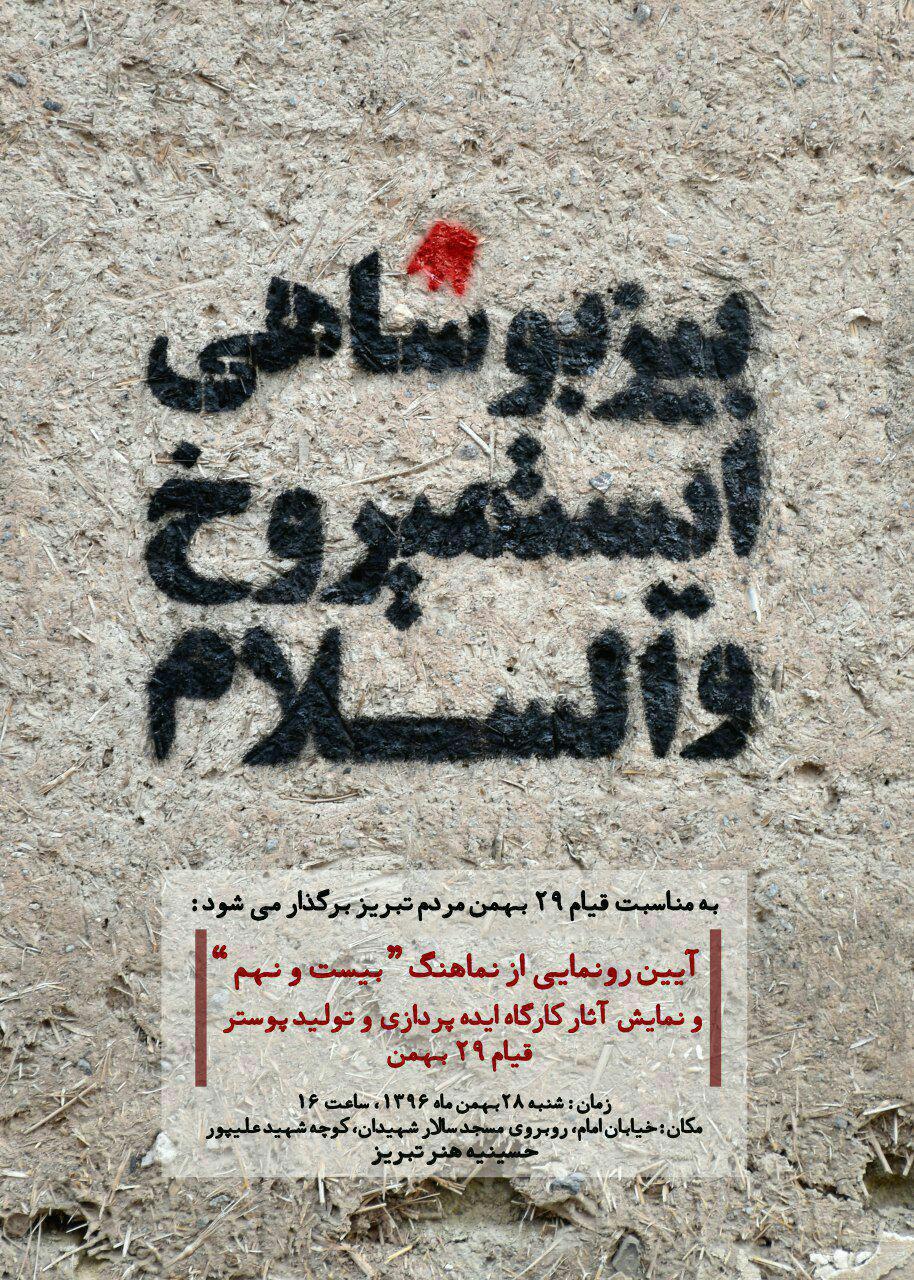 بیز بو شاهی
ایستمیروخ
والسلام
به مناسبت قیام ۲۹ بهمن مردم تبریز برگذار می شود :
آیین رونمایی از نماهنگ "بیست و نهم"
و نمایش آثار کارگاه ایده پردازی و تولید پوستر
قیام ۲۹ بهمن
زمان : شنبه ۲۸ بهمن ماه ۱۳۹۶ ، ساعت ۱۶
مکان : خیابان امام، روبروی مسجد سالار شهیدان، کوچه شهید علیپور
حسینیه هنر تبریز